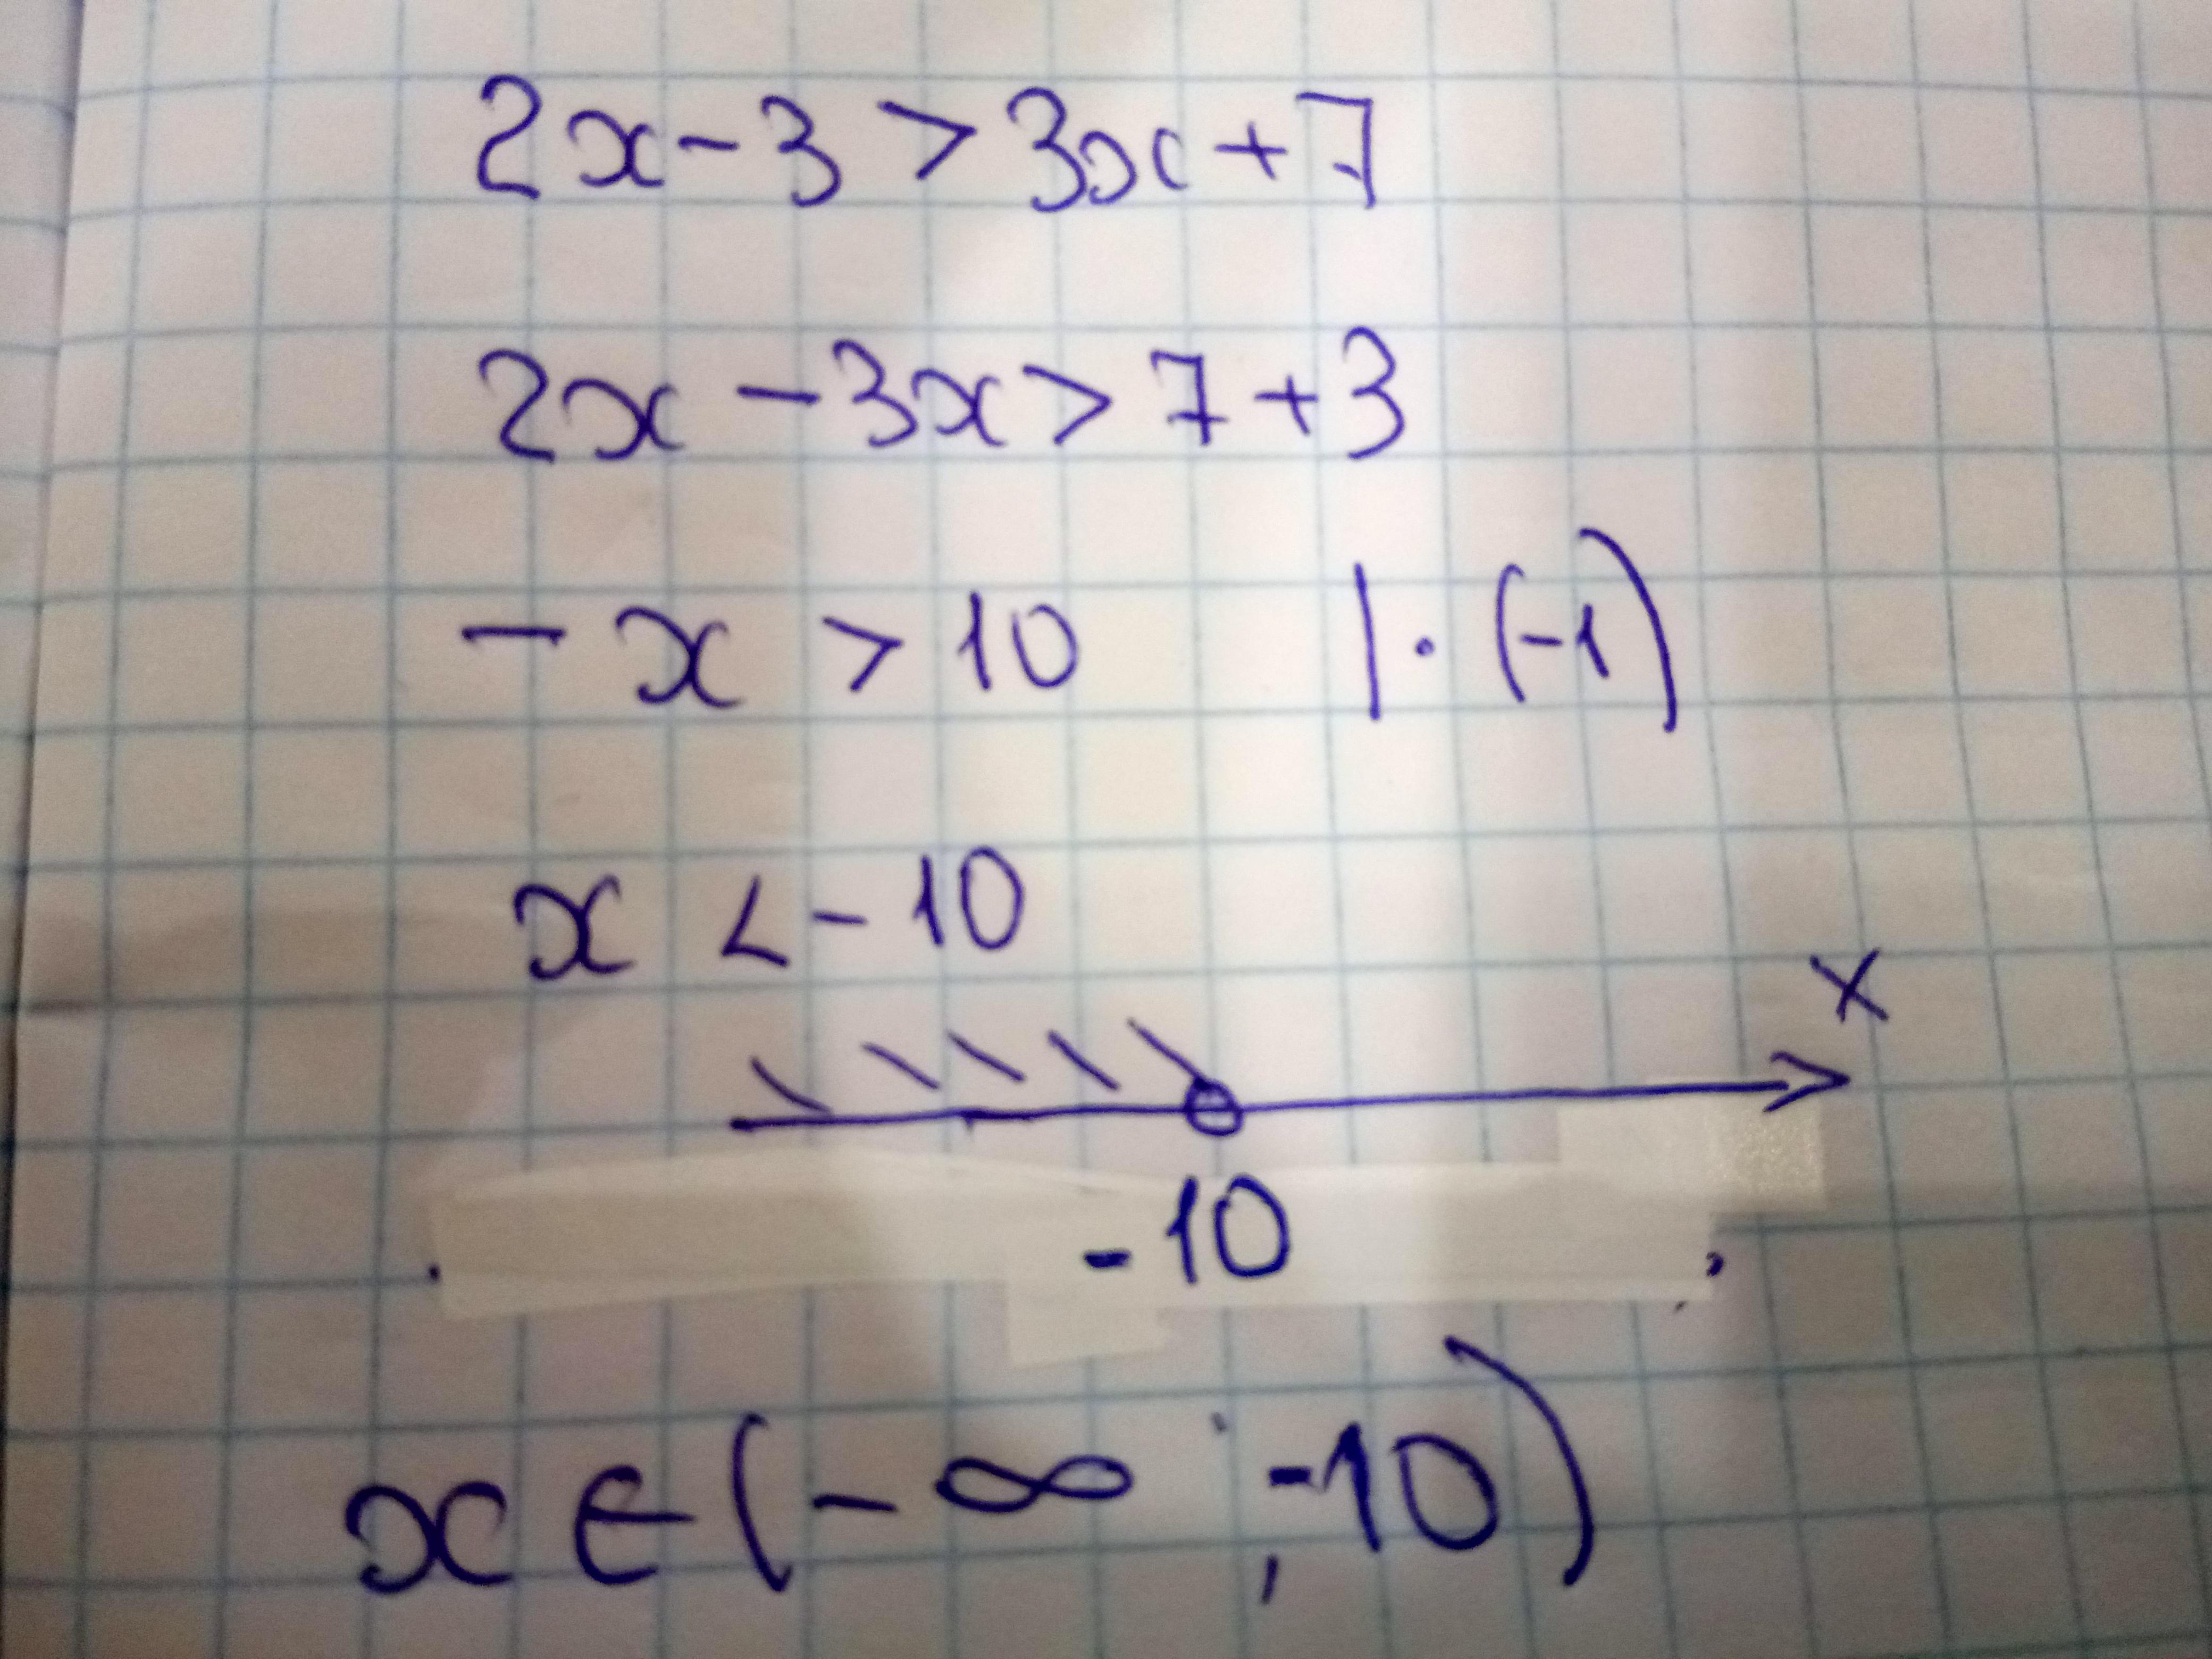 2x-3>3x+7
2x-3x>7+3
-x>10 |·(-1)
x<-10
x
-10
x∈(-∞;-10)